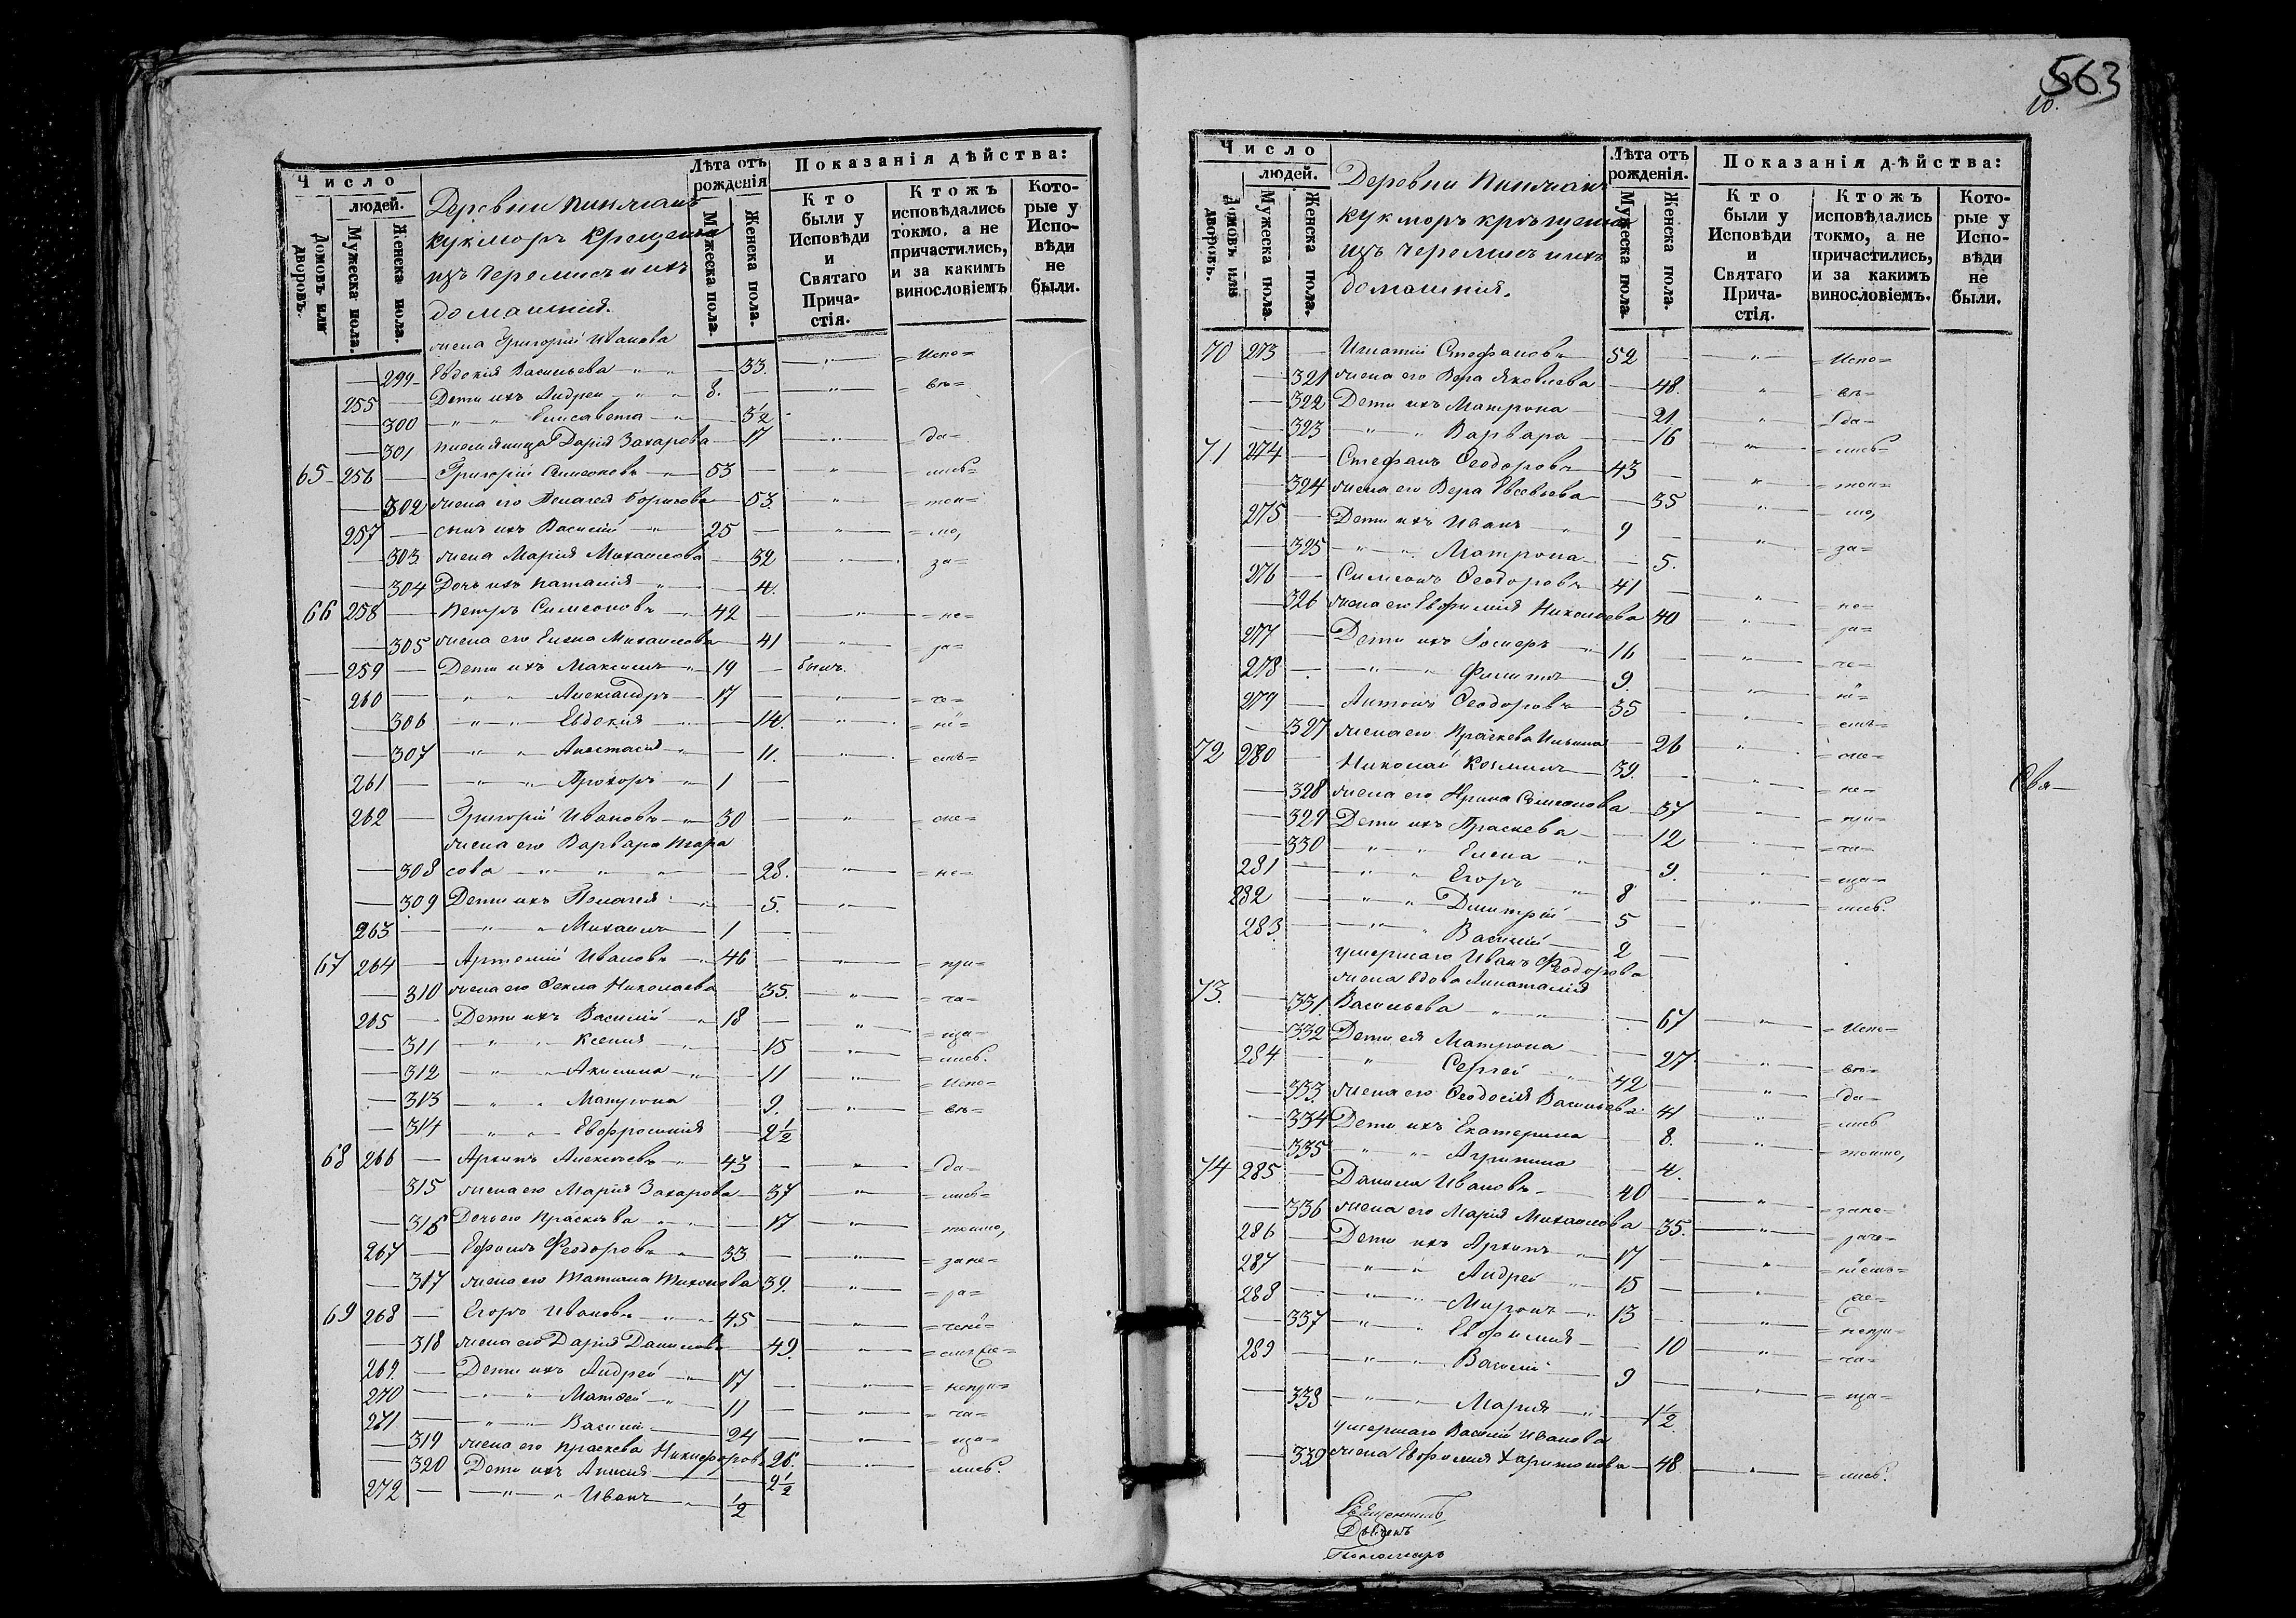 Число
людей.
Домовъ или дворовъ.
Мужеска пола.
Женска пола.
Деревни
кукморъ крещены
изъ черемисъ и ихъ
домашнія.
Лѣта отъ рожденія
Мужеска пола.
Женска пола.
Показанія дѣйства:
Кто были у Исповѣди и Святаго Причастія.
Ктожъ исповѣдались токмо, а не причастились, и за какимъ винословіемъ
Которые у Исповѣди не были.
жена Григорій Иванова
299 Евдокія Васильева 33. Испо=
255 Дети ихъ Андрей 8. вѣ=
300 Елисавета 3½
301 племянница Дарія Захарова 17 да=
65 256 Григорій Симеоновъ 53 лись=
302 жена его Пелагея Борисова 53. ток=
257 сынъ ихъ Василій 25 мо,
303. жена Марія Михаилова 32 за=
304 Дочь ихъ Наталія 4.
66 258 Петръ Симеоновъ 42 не=
305 жена его Елена Михаилова 41 ра=
259 Дети ихъ Максимъ 19 былъ.
260 Александръ 17 че=
306 Евдокія 14. ні=
307 Анастасія 11. емъ=
261 Прохоръ 1
262 Григорій Ивановъ 30 оне=
жена его Варвара Тара
308 сова 28. не=
309 Дети ихъ Пелагея 5.
263 Михаилъ 1
67 264 Артемій Ивановъ 46 при=
310 жена его Фекла Николаева 35. ча=
265 Дети ихъ Василій 18 ща=
311 Ксенія 15 лись.
312 Акилина 11 Испо=
313 Матрона 9. вѣ=
314 Евфросинія 2½
68 266 Архипъ Алексѣевъ 43 да=
315 жена его Марія Захарова 37 лись=
316 Дочь его Праскева 17 токмо,
267 Ефимъ Феодоровъ 33 зане=
317 жена его Татіана Тихонова 39. ра=
69 268 Егоръ Ивановъ 45 чені=
318 жена его Дарія Данилова 49.
269. Дети ихъ Андрей 17 непри=
270 Матѳей 11 ча=
271 Василій 24 ща=
319 жена его Праскева Никифорова 26. лись.
320 Дети ихъ Анисія 2½
272 Иванъ ½
563
10.
Число
людей.
Домовъ или дворовъ.
Мужеска пола.
Женска пола.
Деревни
кукморъ крѣщены
изъ черемисъ и ихъ
домашнія.
Лѣта отъ рожденія.
Мужеска пола.
Женска пола.
Показанія дѣйства:
Кто были у Исповѣди и Святаго Причастія.
Ктожъ исповѣдались токмо, а не причастились, и за какимъ винословіемъ.
Которые у Исповѣди не были.
70 273 Игнатій Стефановъ 52 Испо=
321 жена его Вера Яковлева 48. вѣ=
322 Дети ихъ Матрона 21 да=
323 Варвара 16 лись=
71 274 Стефанъ Ѳеодоровъ 43 ток=
324 жена его Вера Евсевьева 35 мо,
275 Дети ихъ Иванъ 9 за=
325 Матрона 5.
276 Симеонъ Ѳеодоровъ 41 не=
326 жена его Евфимія Николаева 40 ра=
277 Дети ихъ 16 че=
278 Филиппъ 9. ні=
279 Антонъ Ѳеодоровъ 35 емъ=
327 жена его Праскева Ильина 26 оне=
72 280 Николай Козминъ 39. не=
328 жена его Ирина Симеонова 37 при=
329 Дети ихъ Праскева 12 ча=
330 Елена 9. ща=
281 Егоръ 8 лись.
282 Димитрій 5
283. Василій 2
умершаго Иванъ Феодорова
жена вдова Анаталія
73. 331. Васильева 67 Испо=
332 Дети ея Матрона 27 вѣ=
284 Сергей 42 да=
333. жена его Ѳеодосія Васильева 41 лись
334 Дети ихъ Екатерина 8. токмо,
335 Агрипина 4.
74 285 Данила Ивановъ 40 зане=
336 жена его Марія Михаилова 35. раче=
286 Дети ихъ Архипъ 17 ніемъ=
287 Андрей 15
288 Миронъ 13 непри=
337 Евфимія 10 ча=
289 Василій 9 ща=
338 Марія 1½
умершаго Василій Иванова
339 жена Евфимія Харитонова 48 лись.
Священникъ
Дьяконъ
Пономарь
Свя—